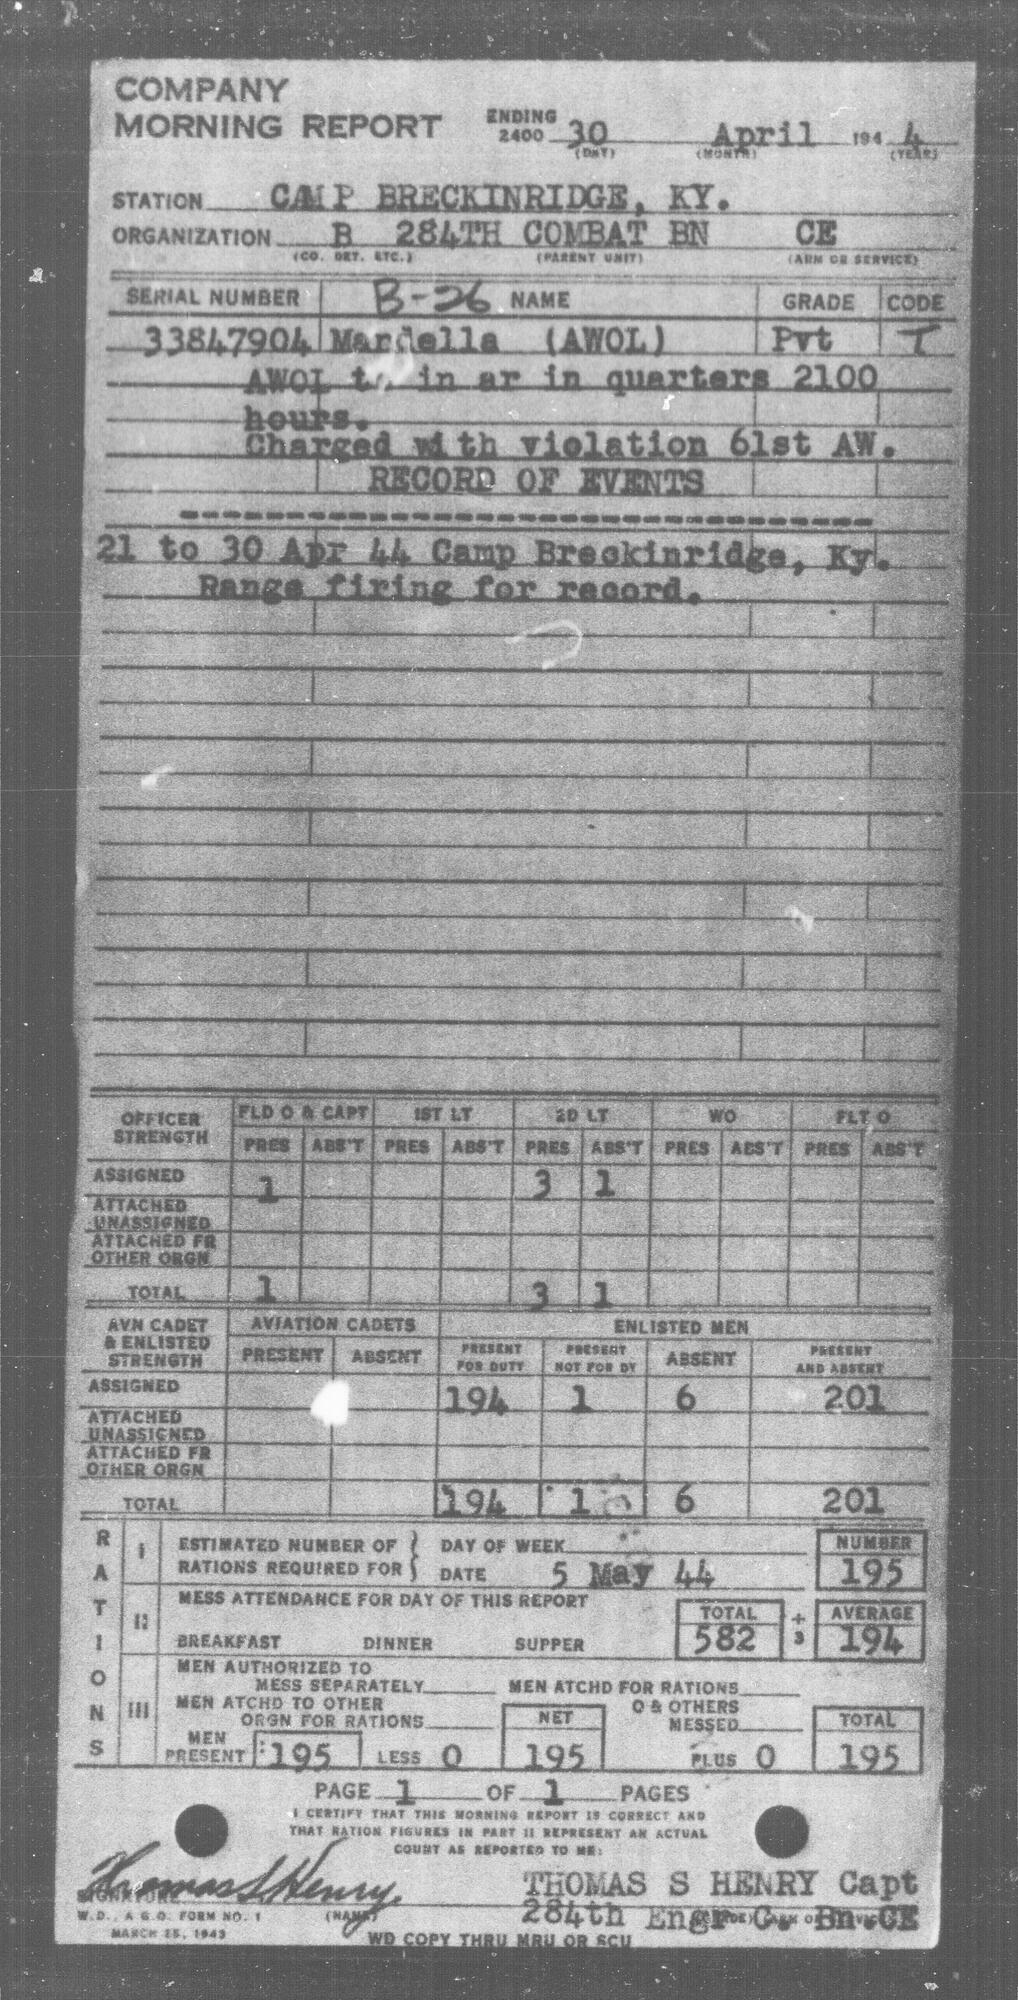 COMPANY
MORNING REPORT ENDING 2400 30 April 194 4
(DAY) (MONTH) (YEAR)
STATION CAMP BRECKINRIDGE, KY.
ORGANIZATION B 284TH COMBAT BN CE
(CO. DET. ETC.) (PARENT UNIT) (ARM OR SERVICE)
SERIAL NUMBER B-26 NAME GRADE CODE
33847904 Mardella (AWOL) Pvt T
AWOL in ar in quarters 2100
hours.
Charged with violation 61st AW.
RECORD OF EVENTS
21 to 30 Apr 44 Camp Breckinridge, Ky.
Range firing for record.
OFFICER STRENGTH FLD O & CAPT 1ST LT 2D LT WO FLT O
PRES ABS'T PRES ABS'T PRES ABS'T PRES ABS'T PRES ABS'T
ASSIGNED 1 3 1
ATTACHED
UNASSIGNED
ATTACHED FR
OTHER ORGN
TOTAL 1 3 1
AVN CADET & ENLISTED STRENGTH AVIATION CADETS ENLISTED MEN
PRESENT ABSENT PRESENT FOR DUTY PRESENT NOT FOR DY ABSENT PRESENT AND ABSENT
ASSIGNED 194 1 6 201
ATTACHED
UNASSIGNED
ATTACHED FR
OTHER ORGN
TOTAL 194 1 6 201
RATIONS
I ESTIMATED NUMBER OF RATIONS REQUIRED FOR DAY OF WEEK NUMBER
DATE 5 May 44 195
II MESS ATTENDANCE FOR DAY OF THIS REPORT TOTAL ÷ AVERAGE
BREAKFAST DINNER SUPPER 582 3 194
III MEN AUTHORIZED TO
MESS SEPARATELY MEN ATCHD FOR RATIONS
MEN ATCHD TO OTHER
ORGN FOR RATIONS NET O & OTHERS MESSED TOTAL
MEN PRESENT 195 LESS 0 195 PLUS 0 195
PAGE 1 OF 1 PAGES
I CERTIFY THAT THIS MORNING REPORT IS CORRECT AND
THAT RATION FIGURES IN PART II REPRESENT AN ACTUAL
COUNT AS REPORTED TO ME:
Thomas S Henry THOMAS S HENRY Capt
SIGNATURE 284th Engr C. Bn CE
W.D., A.G.O. FORM NO. 1 (NAME)
MARCH 25, 1943
WD COPY THRU MRU OR SCU